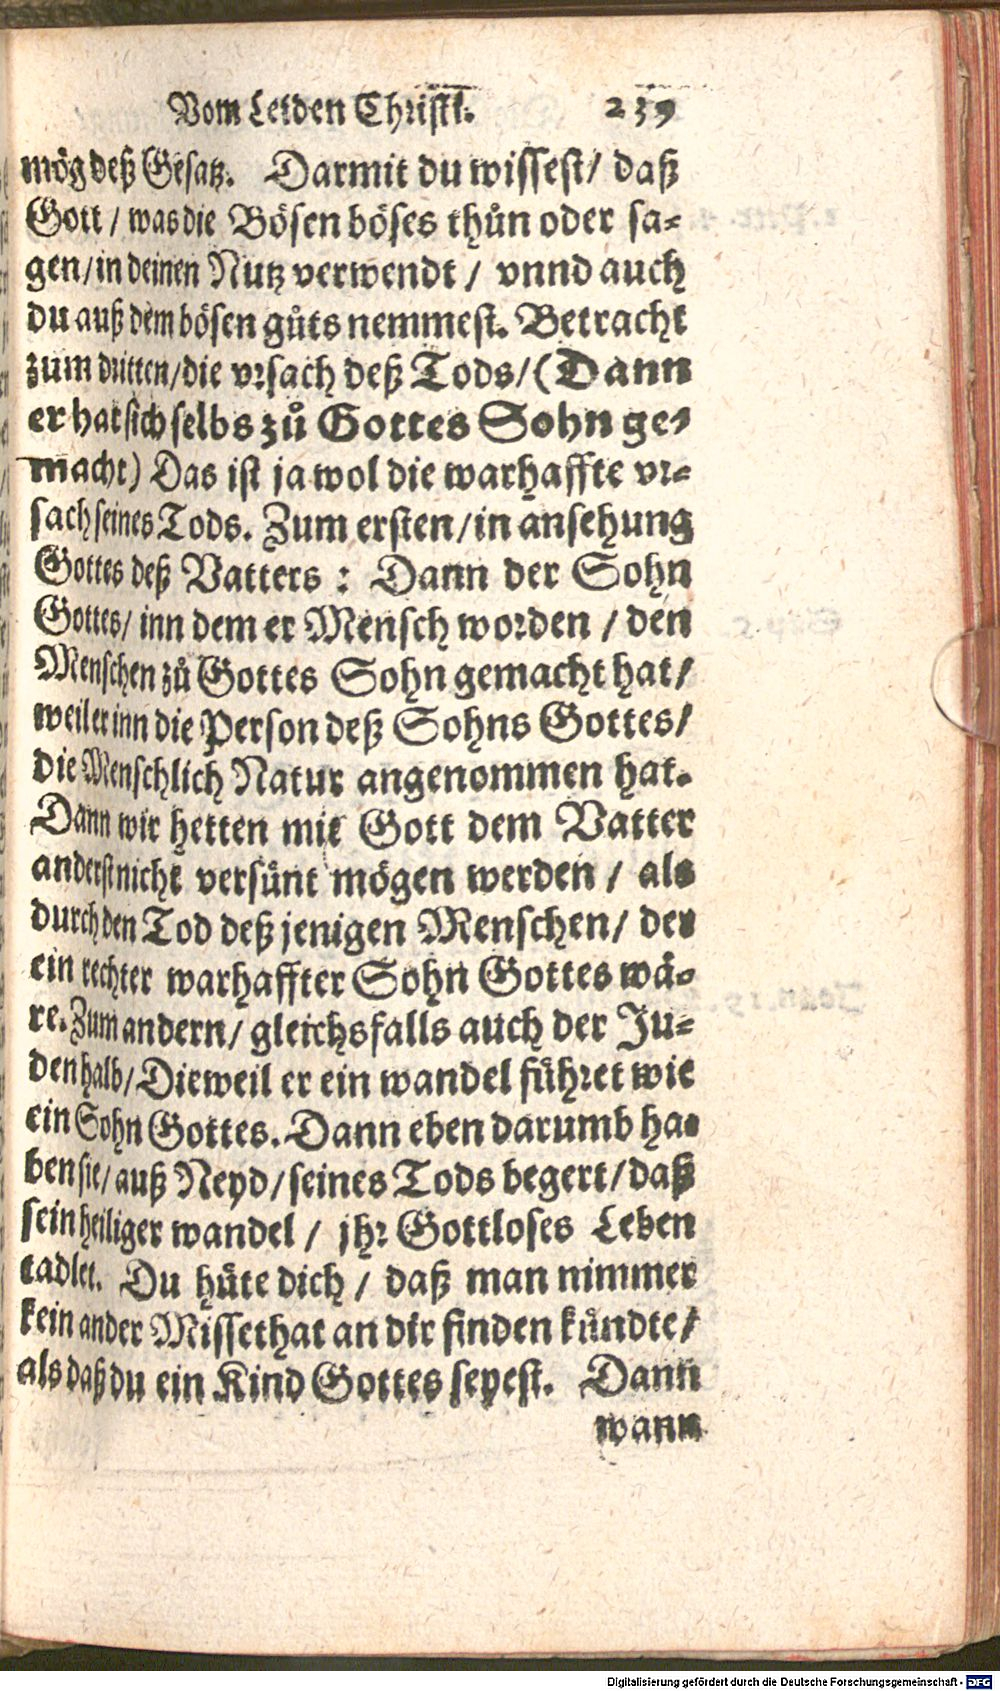 Vom Leiden Christi. 239
mög deß Gesatz. Darmit du wissest/ daß
Gott / was die Bösen böses thůn oder sa-
gen/in deinen Nutz verwendt / vnnd auch
du auß dem bösen gůts nemmest. Betracht
zum dritten/die vrsach deß Tods/(Dann
er hat sich selbs zů Gottes Sohn ge-
macht) Das ist ja wol die warhaffte vr-
sach seines Tods. Zum ersten/in ansehung
Gottes deß Vatters : Dann der Sohn
Gottes/ inn dem er Mensch worden / den
Menschen zů Gottes Sohn gemacht hat/
weil er inn die Person deß Sohns Gottes/
die Menschlich Natur angenommen hat.
Dann wir hetten mit Gott dem Vatter
anderst nicht versünt mögen werden / als
durch den Tod deß jenigen Menschen/ der
ein rechter warhaffter Sohn Gottes wä-
re. Zum andern/ gleichsfalls auch der Ju-
den halb/Dieweil er ein wandel führet wie
ein Sohn Gottes. Dann eben darumb ha-
ben sie/ auß Neyd/seines Tods begert/daß
sein heiliger wandel / jhr Gottloses Leben
tadlet. Du hüte dich / daß man nimmer
kein ander Missethat an dir finden kündte/
als daß du ein Kind Gottes seyest. Dann
wann
Digitalisierung gefördert durch die Deutsche Forschungsgemeinschaft - DFG